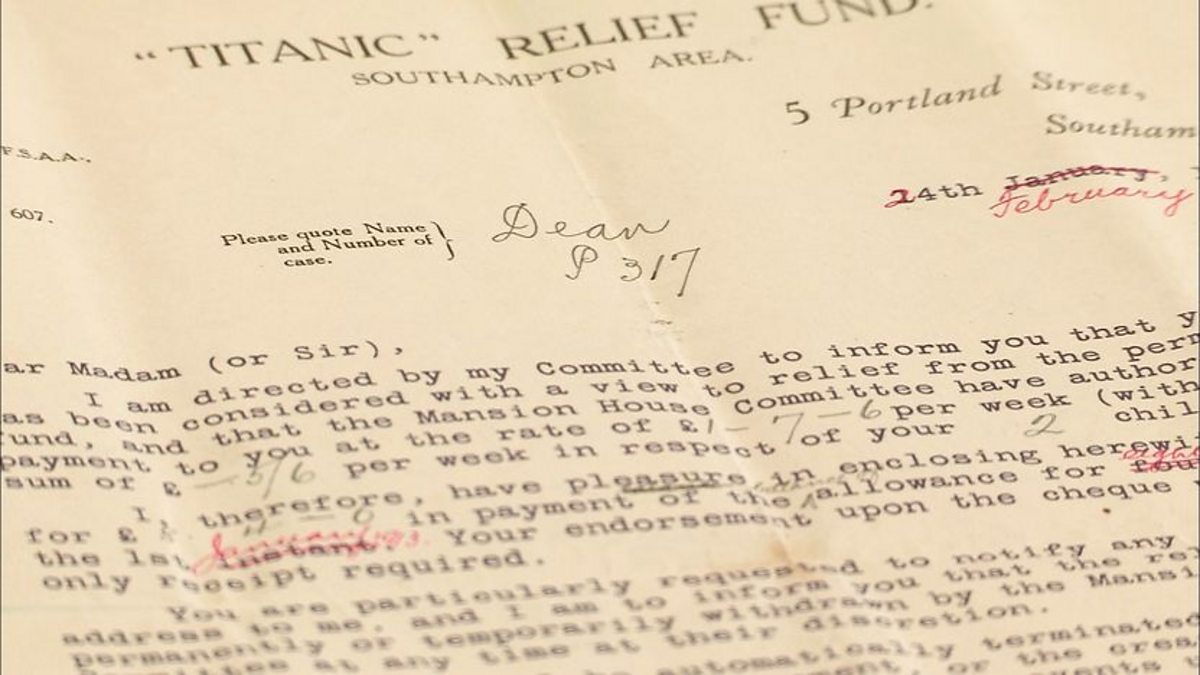 "TITANIC" RELIEF FUND.
SOUTHAMPTON AREA.
5 Portland Street,
Southam
F.S.A.A.
24th January,
February
607.
Please quote Name
and Number of
case.
Dean
P 317
ar Madam (or Sir),
I am directed by my Committee to inform you that y
as been considered with a view to relief from the perm
fund, and that the Mansion House Committee have author
payment to you at the rate of £1-7-6 per week (with
sum of £ -3/6 per week in respect of your 2 chil
I, therefore, have pleasure in enclosing herewi
for £ in payment of the allowance for four
the 1st instant. January 1913. Your endorsement upon the cheque
only receipt required.
You are particularly requested to notify any
address to me, and I am to inform you that the re
permanently or temporarily withdrawn by the Mansi
mmittee at any time at their discretion.
be automatically terminated
or the cres